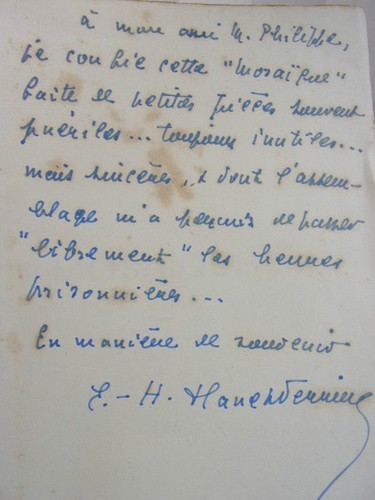 à mon ami M. Philippe,
je confie cette "mosaïque"
faite de petites pièces souvent
puériles... toujours inutiles...
mais sincères, & dont l'assem-
blage m'a permis de passer
"librement" les heures
prisonnières...
En manière de souvenir
E.-H.